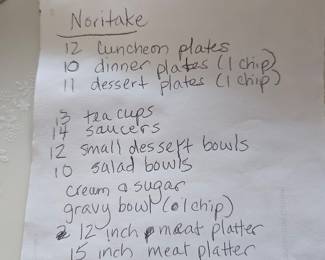 Noritake
12 Luncheon plates
10 dinner plates (1 chip)
11 dessert plates (1 chip)
13 tea cups
14 saucers
12 small dessert bowls
10 salad bowls
cream & sugar
gravy bowl (1 chip)
12 inch meat platter
15 inch meat platter